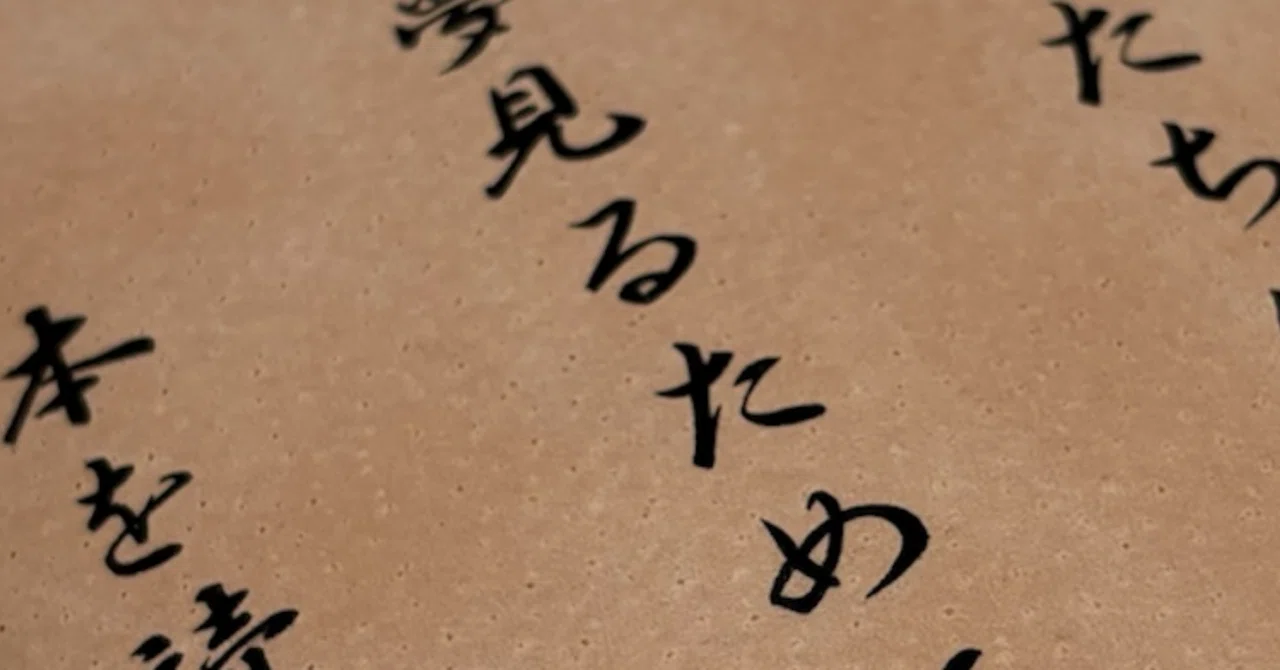 たち
夢見るため
本を読